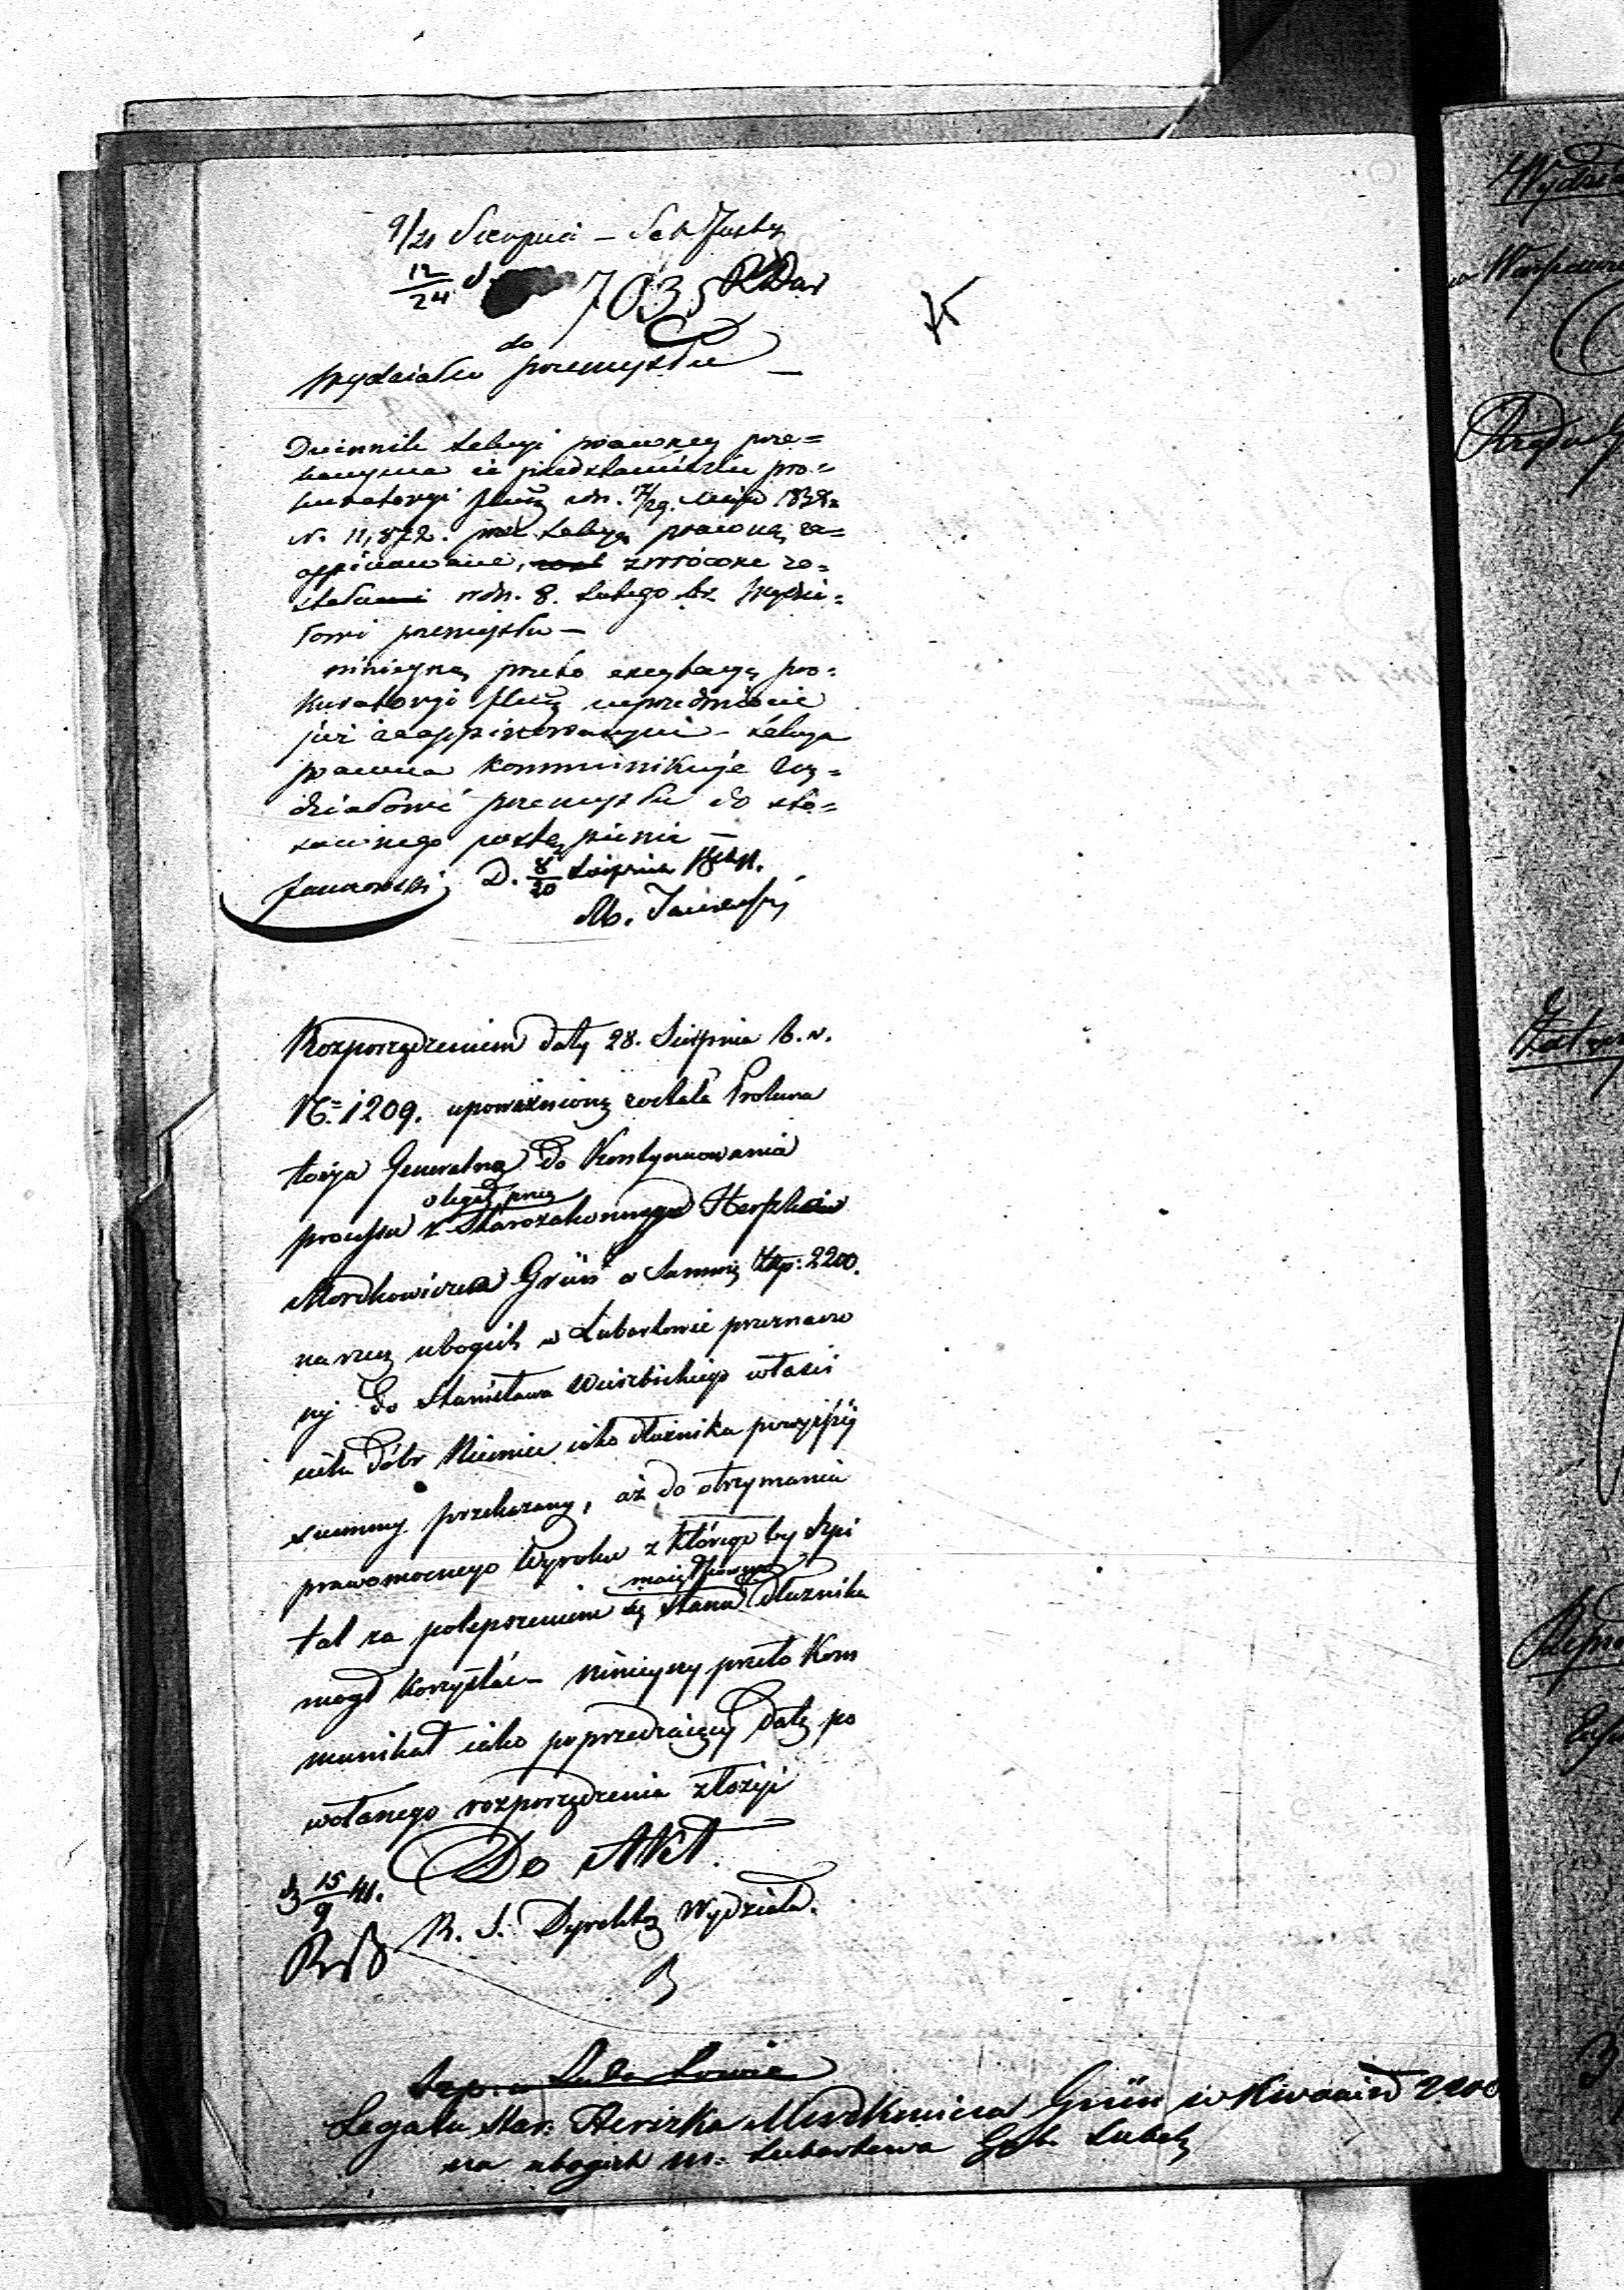 9/21 Sierpnia –
12/24 7035
do
Wydziału przemysłu –
Dziennik Sekcyi prawnej prze=
konywa że przedstawienie pro=
kuratoryi jlnej z dn. 17/29 Maja 1838
N. 11,872. przez Sekcyą prawną za=
oppiniowane, zwrócone zo=
stało w dn. 8. Lutego Wydzia=
łowi przemysłu –
niniejszą przeto excytacyą pro=
kuratoryi jlnej uprzednio
już zaoppiniowanym – Sekcya
prawna kommunikuje Wy=
działowi przemysłu do sto=
sownego postąpienia –
D. 8/20 Sierpnia 1841.
Rozporządzeniem daty 28. Sierpnia b. r.
No 1209. upoważnioną została Prokura
torya Generalna do Kontynuowania
o legat przez
processu Starozakonnego Herszka
Mordkowicza Grün w Summie Złp: 2200.
na rzecz ubogich w Lubartowie przeznaczo
ny do Stanisława Wierzbickiego właści
ciela dóbr Niemce iako dłużnika powyższéj
summy przekazany, aż do otrzymania
prawomocnego Wyroku z którego by Szpi
majątkowego
tal za polepszeniem się stanu dłużnika
mógł korzystać – Niniejszy przeto Kom
munikat iako poprzedzający datę po
wołanego rozporządzenia złożyć
Do Akt.
15/9 41.
R. S. Dyrektor Wydziału.
Szp. w Lubartowie
Legatu Star: Herszka Mordkowicza Grün w Kwocie 2200
na ubogich m: Lubartowa Gub. Lubels